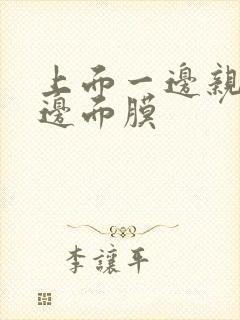 上而一邊親
邊而膜
李讓平